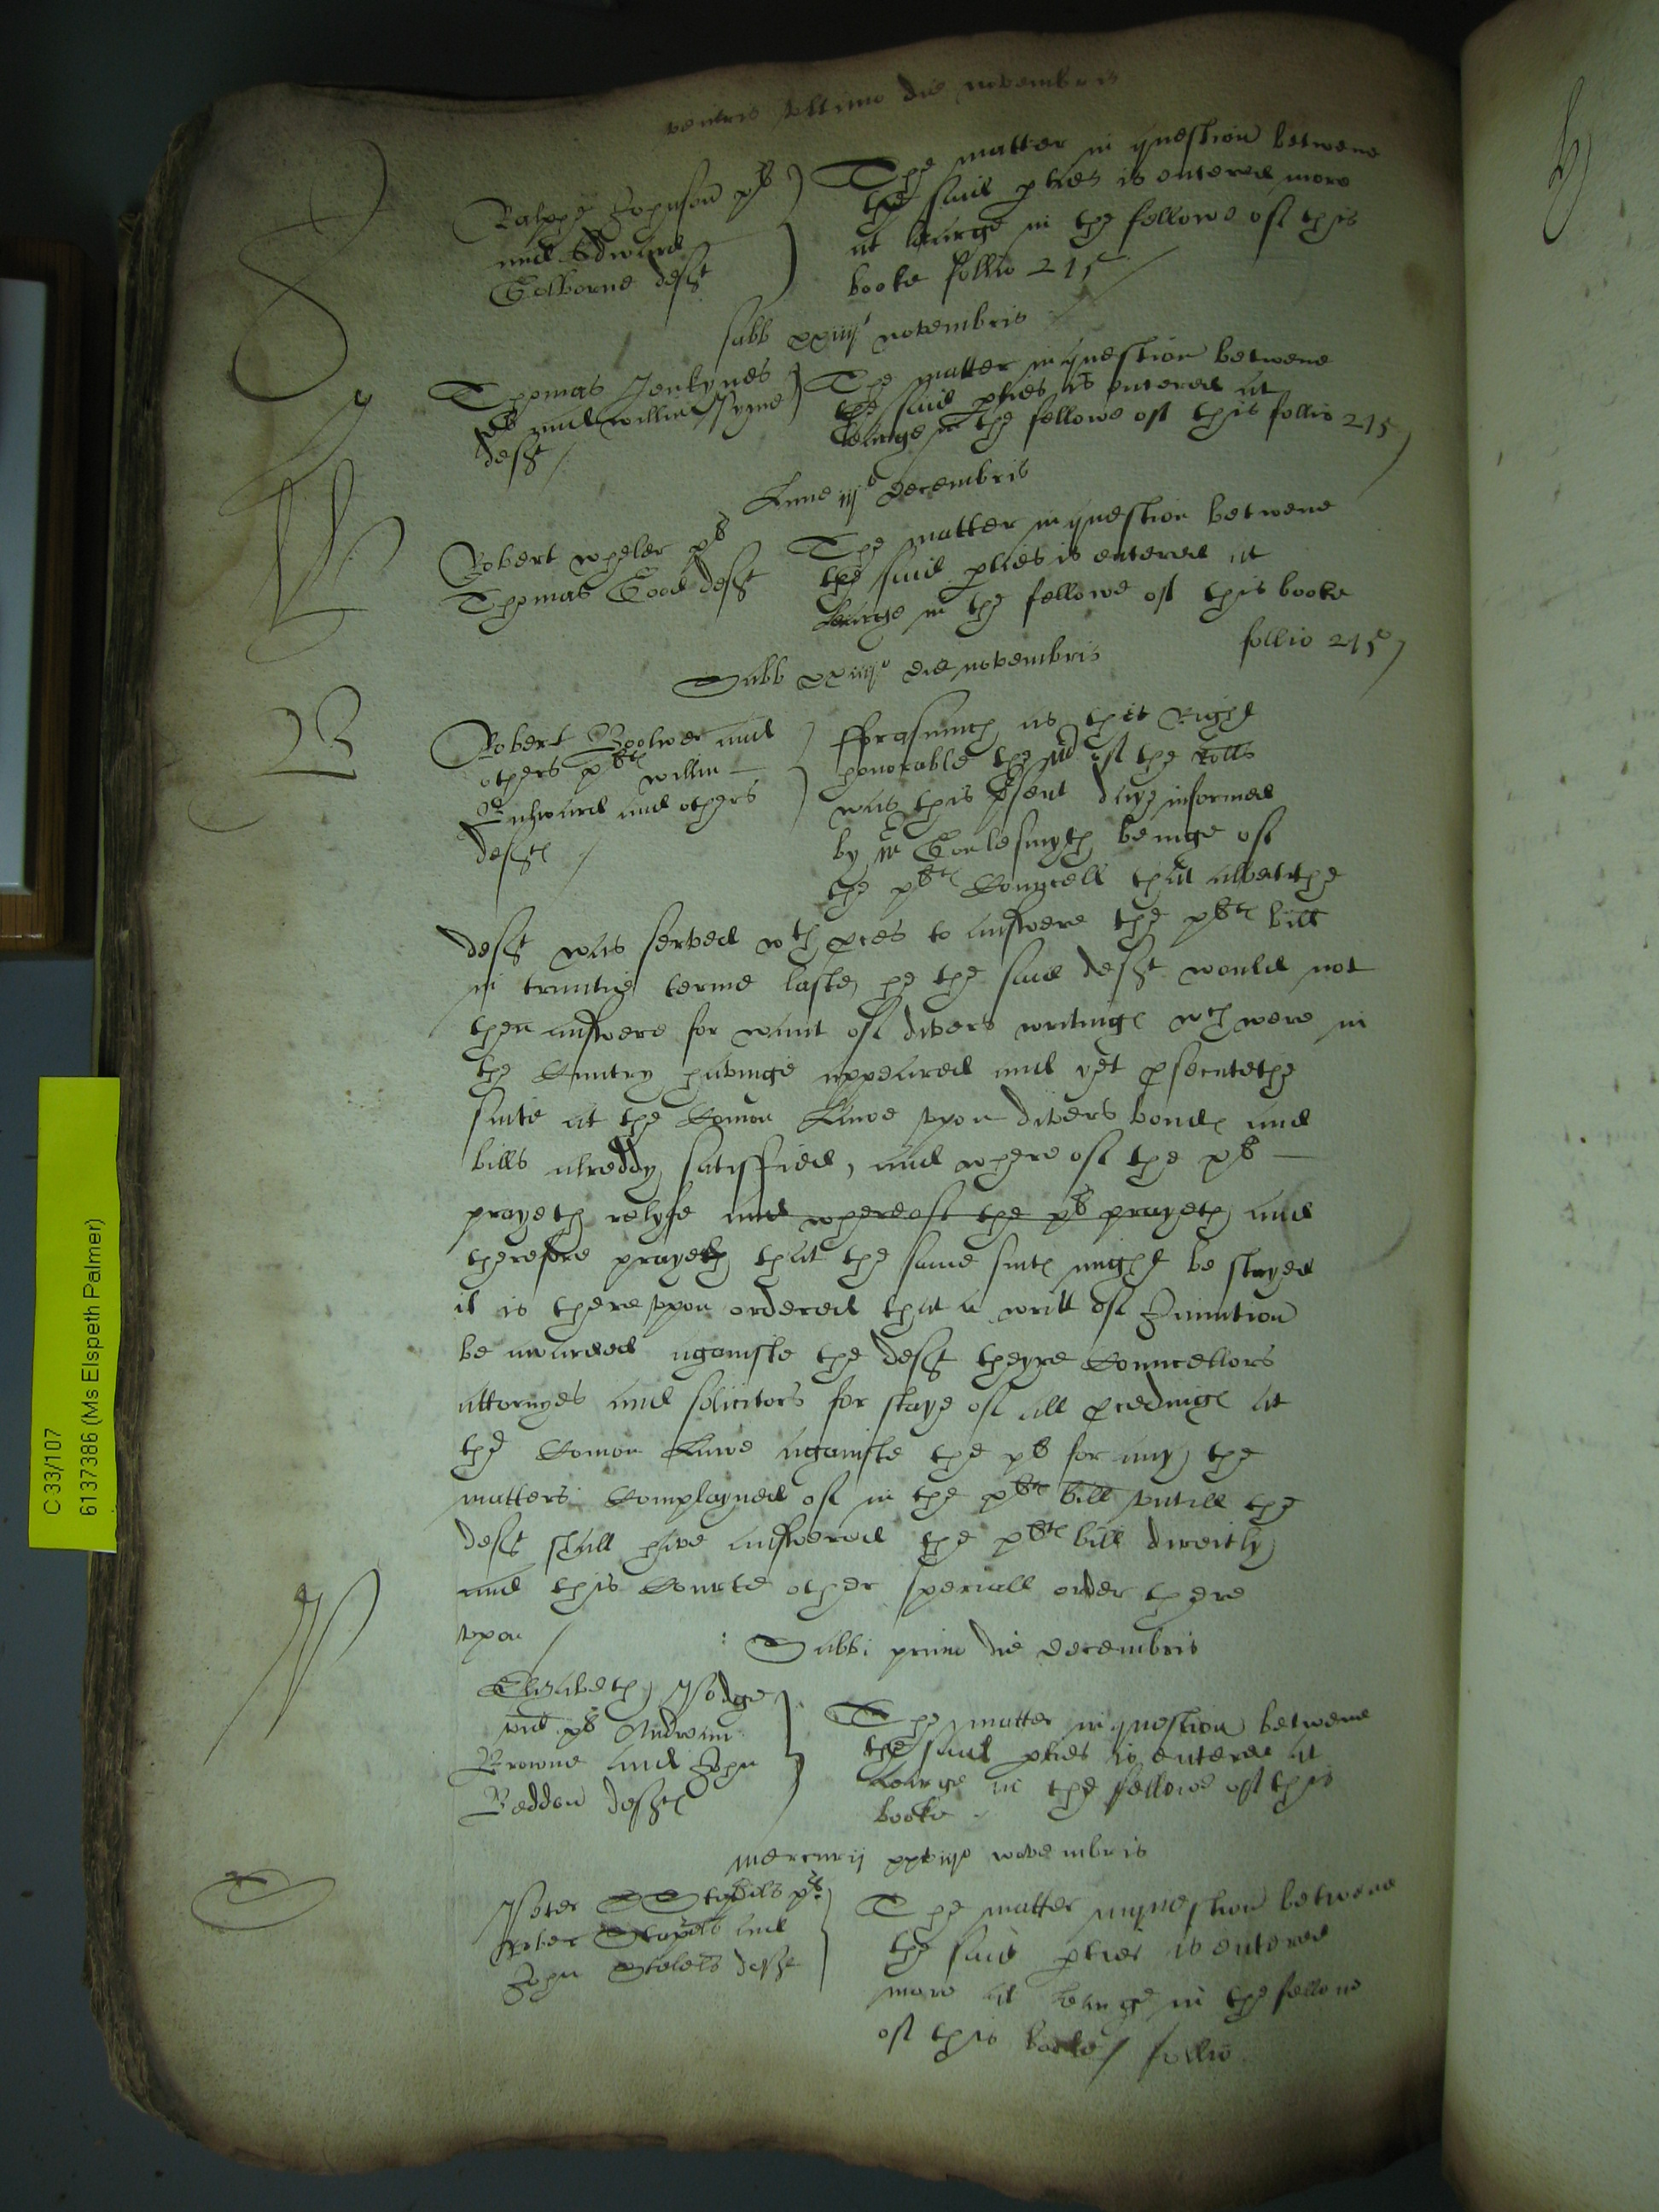 veneris ultimo die novembris
Ralphe Johnson pl
and Edward
Colborne deft
The matter in question betwene
the said pties is entered more
at learge in the fellowe of this
booke follio 215
Sabb xxiiijo novembris
Thomas Jenkynes
pl and willm Pyne
deft /
The matter in question betwene
the said pties is entered at
learge in the fellowe of this follio 215
Lune iijo decembris
Robert wheler pl
Thomas Good deft
The matter in question betwene
the said pties is entered at
learge in the fellowe of this booke
follio 215
Sabb xxiiijo die novembris
B
Robert and
others plts willm
and others
defts /
Fforasmuch as the right
honorable the mr of the rolls
was this psent daye informed
by mr Gouldesmyth beinge of
the plts Councell that albeit the
deft was served wth pces to answere the plts bill
in trinitie terme laste, he the said deft would not
then answere for want of divers writings wch were in
the Cuntry havinge appeared and yet psecutethe
suite at the Comon Lawe upon divers bonds and
bills alreddy satisffied, and where of the pl
prayeth relyfe and whereof the pl prayeth and
therefore prayeth that the same suite might be stayed
it is there upon ordered that a writt of Iniunction
be awarded againste the deft theyre Councellors
attornyes and solicitors for staye of all pcedings at
the Comon Lawe againste the pl for any the
matters Complayned of in the plts bill untill the
deft shall have answered the plts bill directly
and this Courte other speciall order there
upon /
Sabbi primo die decembris
Elizabeth Hodge
vid pl Andrew
Browne and John
Beddon defts
The matter in question betwene
the said pties is entered at
learge in the fellowe of this
booke
mercurij xxviijo novembris
Peter pl
and
John deft
The matter in question betwene
the said pties is entered
more at learge in the fellowe
of this booke / follio
C 33/107
6137386 (Ms Elspeth Palmer)